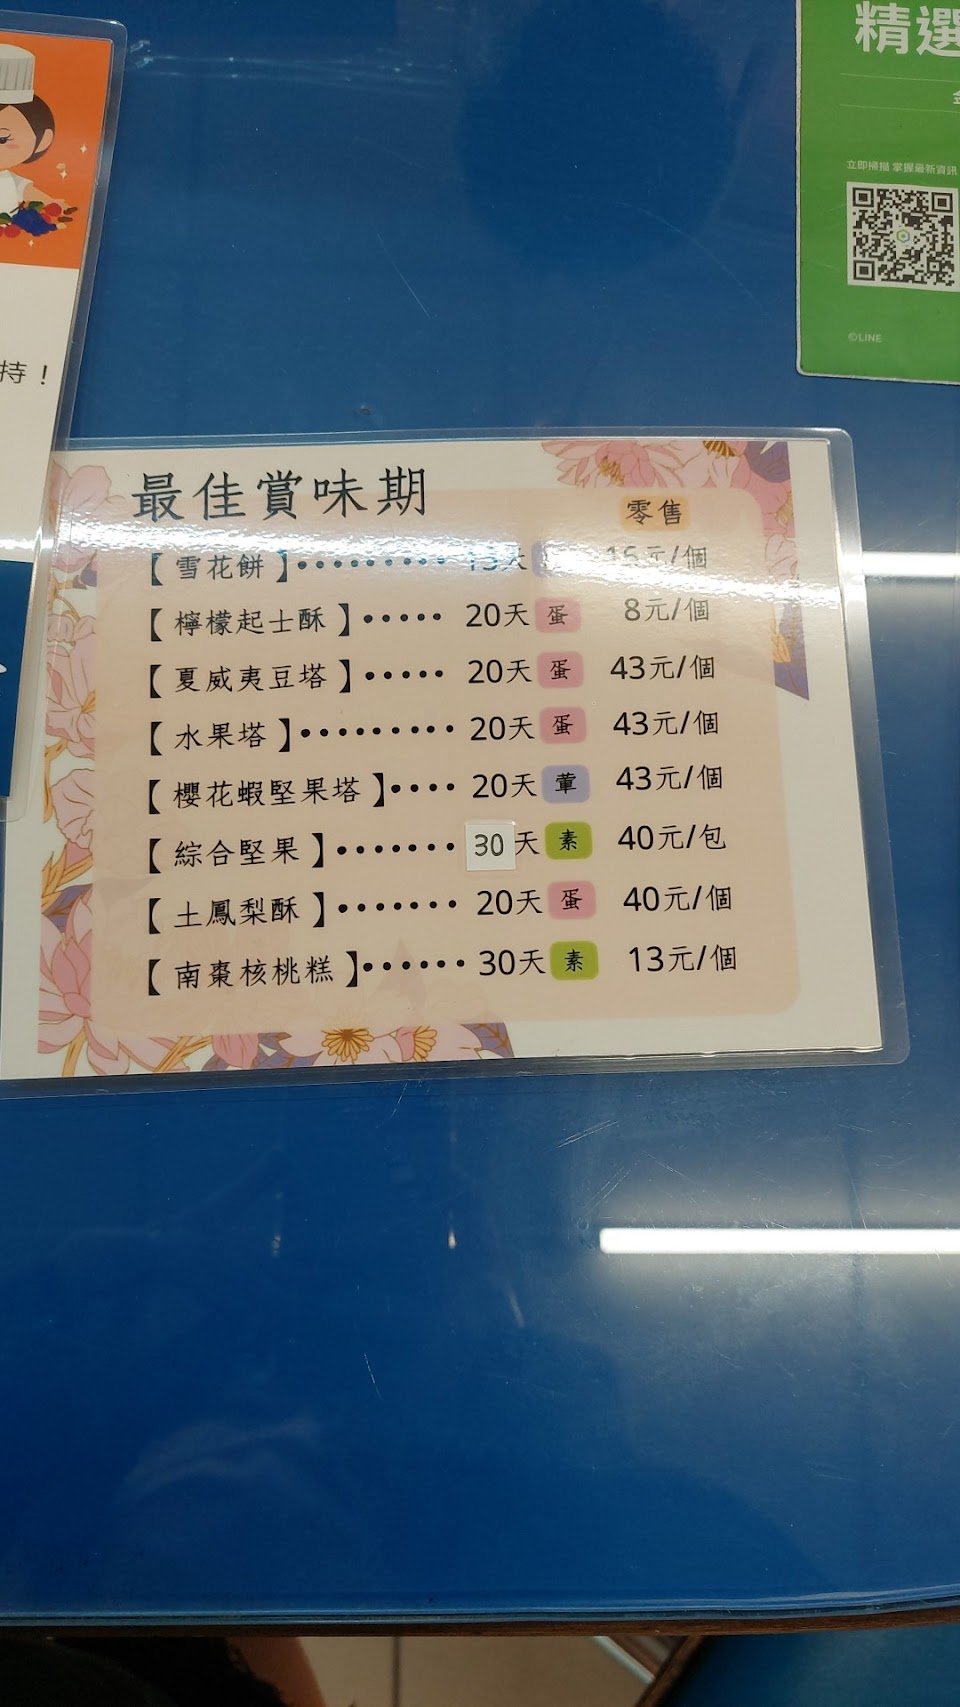 精選
立即掃描 掌握最新資訊
©LINE
持！
最佳賞味期
零售
【雪花餅】•••••••••15天 15元/個
【檸檬起士酥】•••••20天 蛋 8元/個
【夏威夷豆塔】•••••20天 蛋 43元/個
【水果塔】•••••••••20天 蛋 43元/個
【櫻花蝦堅果塔】••••20天 葷 43元/個
【綜合堅果】•••••••30天 素 40元/包
【土鳳梨酥】•••••••20天 蛋 40元/個
【南棗核桃糕】••••••30天 素 13元/個